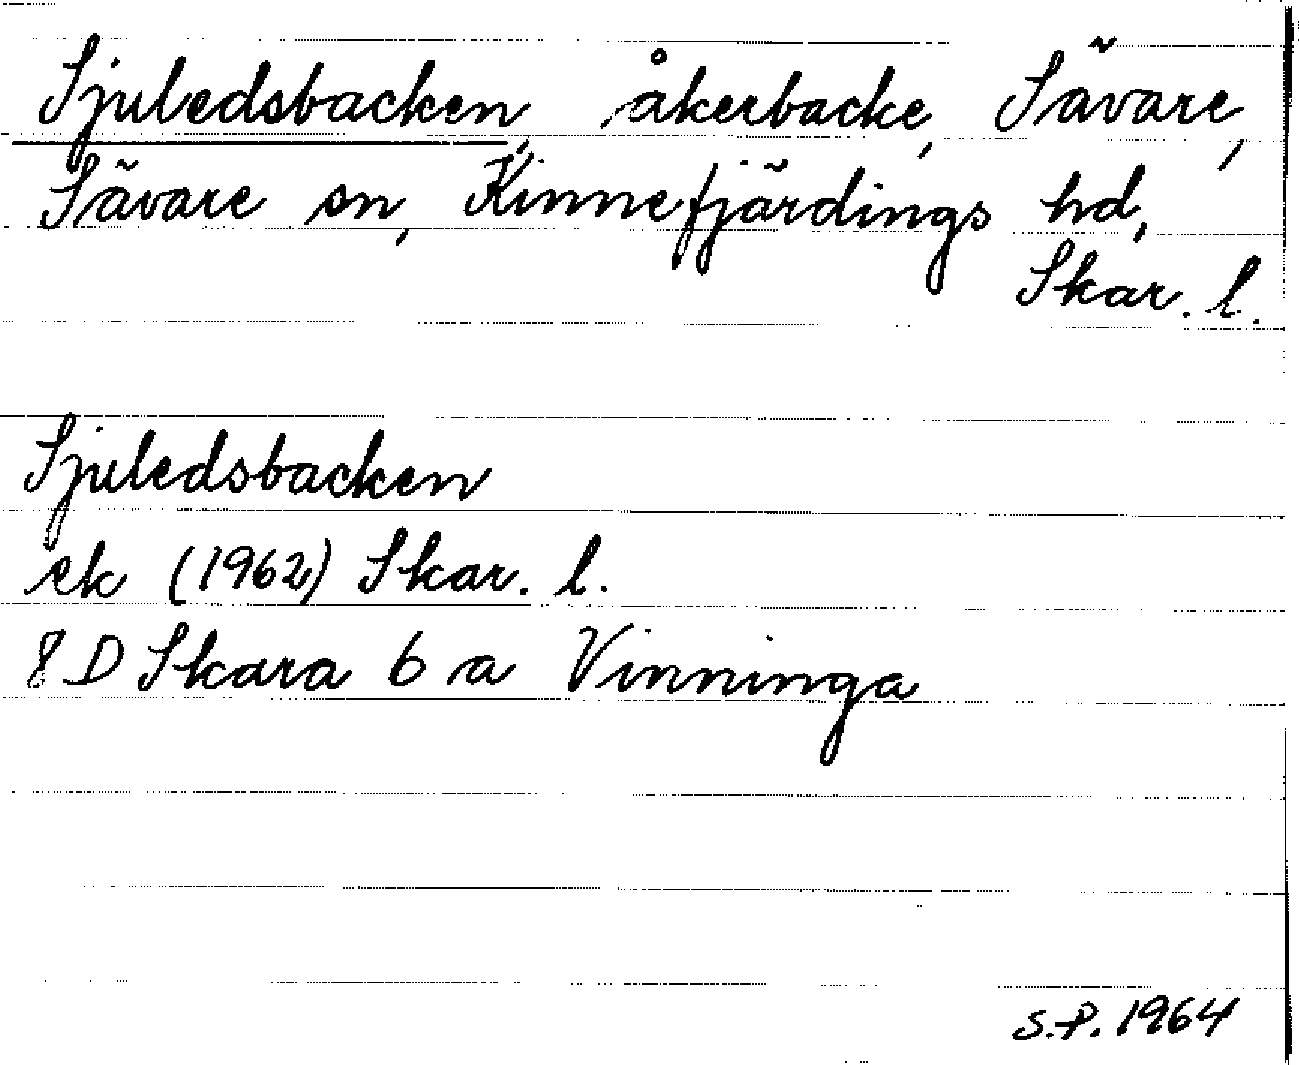 Sjuledsbacken, åkerbacke, Sävare,
Sävare sn, Kinnefjärdings hd,
Skar. l.
Sjuledsbacken
ek (1962) Skar. l.
8 D Skara 6 a Vinninga
S.P. 1964